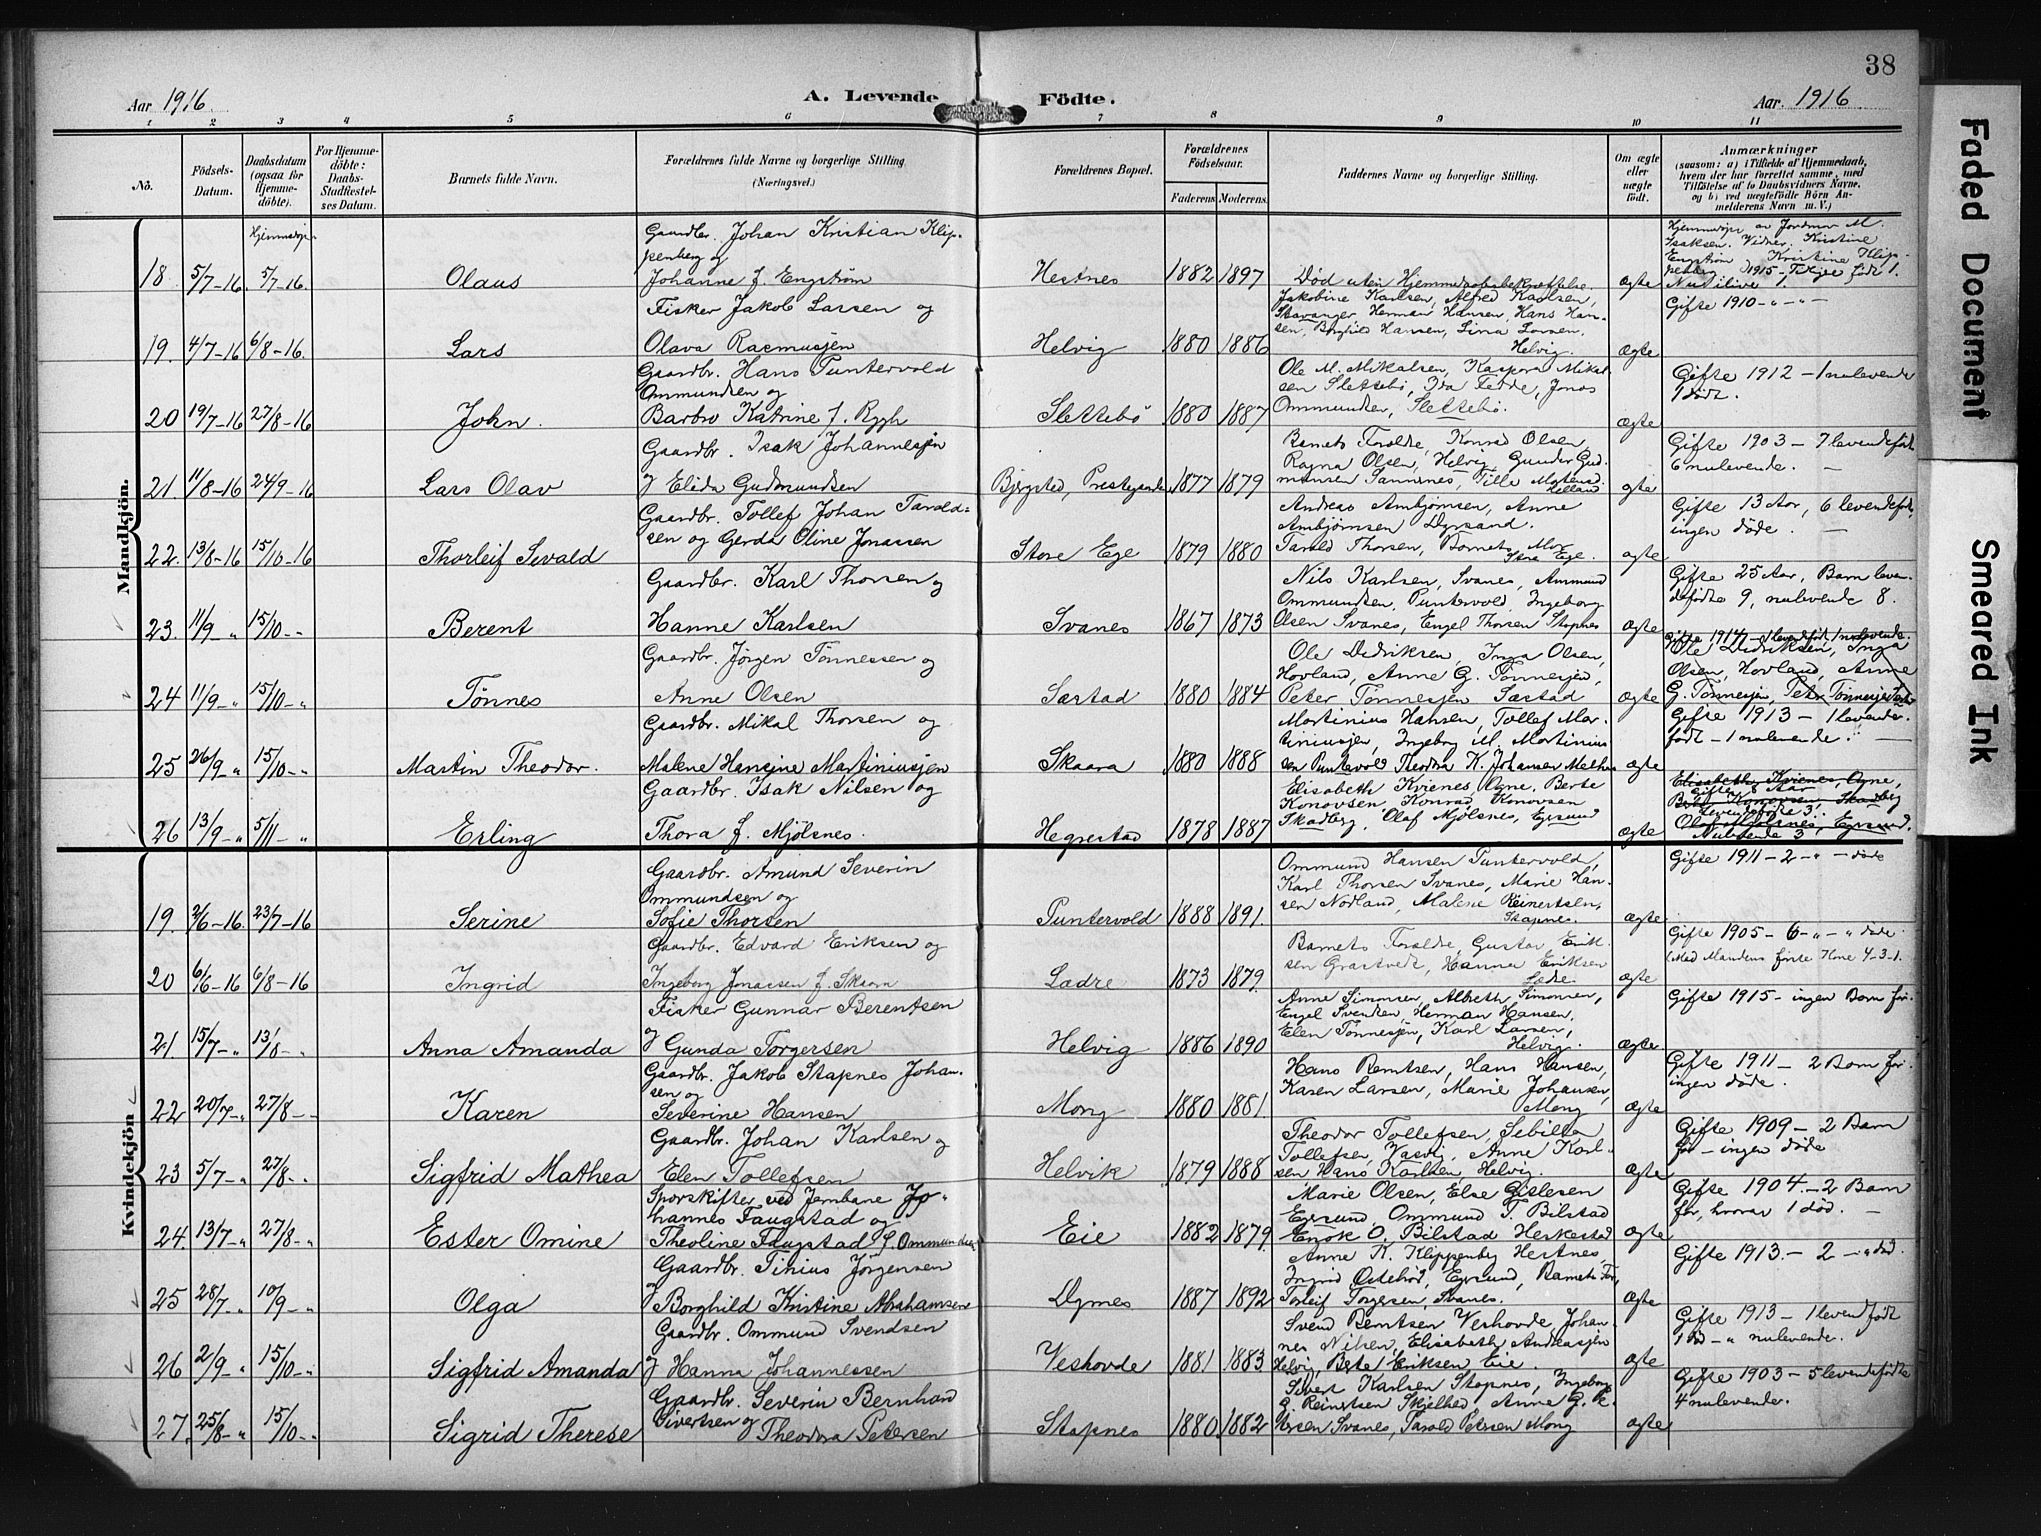 38
Aar 1916.
A. Levende Födte.
Aar. 1916
Faded Document
Smeared Ink
1 2 3 4 5 6 7 8 9 10 11
No.
Födsels-Datum.
Daabsdatum (ogsaa for Hjemme-döbte).
For Hjemme-döbte: Daabs-Stadfæstel-ses Datum.
Barnets fulde Navn.
Forældrenes fulde Navne og borgerlige Stilling. (Næringsvei.)
Forældrenes Bopæl.
Forældrenes Födselsaar.
Faderens. Moderens.
Faddernes Navne og borgerlige Stilling.
Om ægte eller uægte födt.
Anmærkninger
(saasom: a) i Tilfælde af Hjemmedaab, hvem der har forrettet samme, med Tilföielse af to Daabsvidners Navne, og b) ved uægtefödte Börn An-melderens Navn m. V.)
Mandkjön.
18. 5/7-16 Hjemmedøpt 5/7-16. Olaus
Gaardbr. Johan Kristian Klip-
penberg og
Johanne f. Engstrøm
Hestnes 1882 1897
Død uten Hjemmedaabsbekræftelse.
ægte
Hjemmedøpt av Jordmor M.
Isaksen. Vidner, Kristine
Engstrøm Kristine Klip-
penberg
19. 4/7-16 6/8-16. Lars
Fisker Jakob Larsen og
Olava Rasmusjen
Helvig 1880 1886
Jakobine Karlsen, Alfred Karlsen,
Stavanger Herman Hansen, Hans Han-
sen, Borghild Hansen, Lina Larsen,
Helvig.
ægte
Gifte 1910 - " - " -
20 19/7-16 27/8-16 John.
Gaardbr. Hans Puntervold
Ommundsen og
Barbro Katrine f. Rygh
Slettebö 1880 1887
Ole M. Mikalsen, Kaspara Mikal-
sen Slettebö, Ida Tedde, Jonas
Ommundsen, Slettebö.
ægte
Gifte 1912 - 1 nulevende
1 död.
21. 11/8-16 24/9-16 Lars Olav
Gaardbr. Isak Johannesjen
og Elida Gudmundsen
Bjersted, Prestegaarden 1877 1879
Barnets Forældre, Konrad Olsen,
Ragna Olsen, Helvig Gunder Gud-
mansen Sannesnes, Tille Mortensen
Helland
ægte
Gifte 1903 - 7 levendefødt
6 nulevende. -
22. 13/8-16 15/10-16 Thorleif Sevald
Gaardbr. Tollef Johan Tarald-
sen og Gerda Oline Jonassen
Store Ege 1879 1880
Andreas Ambjörnsen, Anne
Ambjörnsen Dyrsand.
Tarald Thorsen, Barnets Mor
Store Ege.
ægte
Gifte 13 Aar, 6 levendefødt,
ingen døde. -
23. 11/9 - " 15/10 - " Berent
Gaardbr. Karl Thorsen og
Hanne Karlsen
Svanes 1867 1873
Nils Karlsen, Svanes, Ammund
Ommundsen, Puntervold, Ingeborg
Olsen Svanes, Engel Thorsen Stapnes
ægte
Gifte 25 Aar, Barn leven-
defødte 9, nulevende 8.
24 11/9 - " 15/10 - " Tönnes
Gaardbr. Jörgen Tönnessen og
Anne Olsen
Sæstad 1880 1884
Ole Didriksen, Inga Olsen,
Hovland, Anne G. Tönnesjen,
Peter Tönnesjen Sæstad
ægte
Gifte 1914 - 1 levendefødt, 1 nulevende.
Ole Didriksen, Inga
Olsen, Hovland, Anne
G. Tönnesjen, Peter Tönnesjen Sæstad
25 26/9 " 15/10 - " Martin Theodor.
Gaardbr. Mikal Thorsen og
Malene Hansine Martiniusjen
Skaara 1880 1888
Martinius Hansen, Tollef Mar-
tiniusjen, Ingeborg M. Martinius-
sen Puntervold Theodra K. Johansen
ægte
Gifte 1913 - 1 levende-
født - 1 nulevende. -
26 13/9 - " 5/11 - " Erling
Gaardbr. Isak Nilsen og
Thora f. Mjölsnes.
Hegrestad 1878 1887
Elisabeth Kvienes Ogne, Berte
Konovsen, Konrad Konovsen
Skadberg, Olaf Mjölsnes, Egersund
ægte
Elisabeth Kvienes, Ogne,
Gifte 8 Aar
Berte Konovsen, Skadberg
levendefødte 3.
Olaf Mjölsnes, Egersund.
Nulevende 3
Kvindekjön
19. 2/6-16. 23/7-16 Serine
Gaardbr. Amund Severin
Ommundsen og
Sofie Thorsen
Puntervold 1888 1891.
Ommund Hansen Puntervold,
Karl Thorsen Svanes, Marie Han-
sen Nodland, Malene Reinertsen,
Stapnes.
ægte
Gifte 1911 - 2 - " - døde
20 6/6-16 6/8-16 Ingrid
Gaardbr. Edvard Eriksen og
Ingeborg Jonassen f. Skaara
Lædre 1873 1879.
Barnets Forældre, Gustav Erik-
sen Grastvedt, Hanna Eriksen
Lædre.
ægte
Gifte 1905 - 6 - " - " døde
(Med Mandens første Kone 4-3-1.
21. 15/7 - " 13/8 - " Anna Amanda
Fisker Gunnar Berentsen
og Gunda Torgersen
Helvig 1886 1890
Anne Simonsen, Albreth Simonsen,
Engel Svendsen, Herman Hansen,
Elen Tönnesjen, Karl Larsen,
Helvig.
ægte.
Gifte 1915 - ingen Barn før.
22 20/7 - " 27/8 - - Karen
Gaardbr. Jakob Stapnes Johan-
sen og
Severine Hansen
Mong 1880 1881.
Hans Berntsen, Hans Hansen,
Karen Larsen, Marie Johansen,
Mong
ægte
Gifte 1911 - 2 Barn før
ingen døde.
23 5/7 - " 27/8 - " Sigfrid Mathea
Gaardbr. Johan Karlsen og
Elen Tollefsen
Helvik 1879 1888
Theodor Tollefsen, Sebilla
Tollefsen, Vasvig, Anne Karl-
sen, Hans Karlsen, Helvig.
ægte
Gifte 1909 - 2 Barn
før - ingen døde
24. 13/7 - " 27/8 - " Ester Omine
Sporskifter ved Jernbane Jo-
hannes Faugstad og
Theoline Faugstad f. Ommundsen
Eie 1882 1879.
Marie Olsen, Else Gislesen
Egersund Ommund T. Bilstad
Enok O. Bilstad Herkestad
ægte
Gifte 1904. - 2 Barn
før, hvorav 1 død. -
25 28/7 - " 10/9 - " Olga
Gaardbr. Tinius Jörgensen
og
Borghild Kristine Abrahamsen
Dyrnes 1887 1892
Anne K. Klippenberg Hestnes
Ingrid Ostebrød, Egersund, Barnets For,
Torleif Torgersen, Svanes.
ægte
Gifte 1913. - 2 - " død.
26 2/9 - " 15/10 - " Sigfrid Amanda
Gaardbr. Ommund Svendsen
og Hanna Johannessen
Veshovde 1881 1883
Svend Berntsen Veshovde Johan-
nes Nilsen, Elisabeth Andreasjen
Helvig, Berte Eriksen Eie.
ægte
Gifte 1913 - 1 levendefødt
1 død - " nulevende.
27. 25/8 - " 15/10 - " Sigrid Therese
Gaardbr. Severin Bernhard
Sivertsen og
Theodora Petersen
Stapnes 1880 1882
Sivert Karlsen Stapnes, Ingeborg
G. Reinertsen Skjelbed Anne G.
Svanes, Tarald Petersen Mong
ægte
Gifte 1903 - 5 levendefødte
4 nulevende.